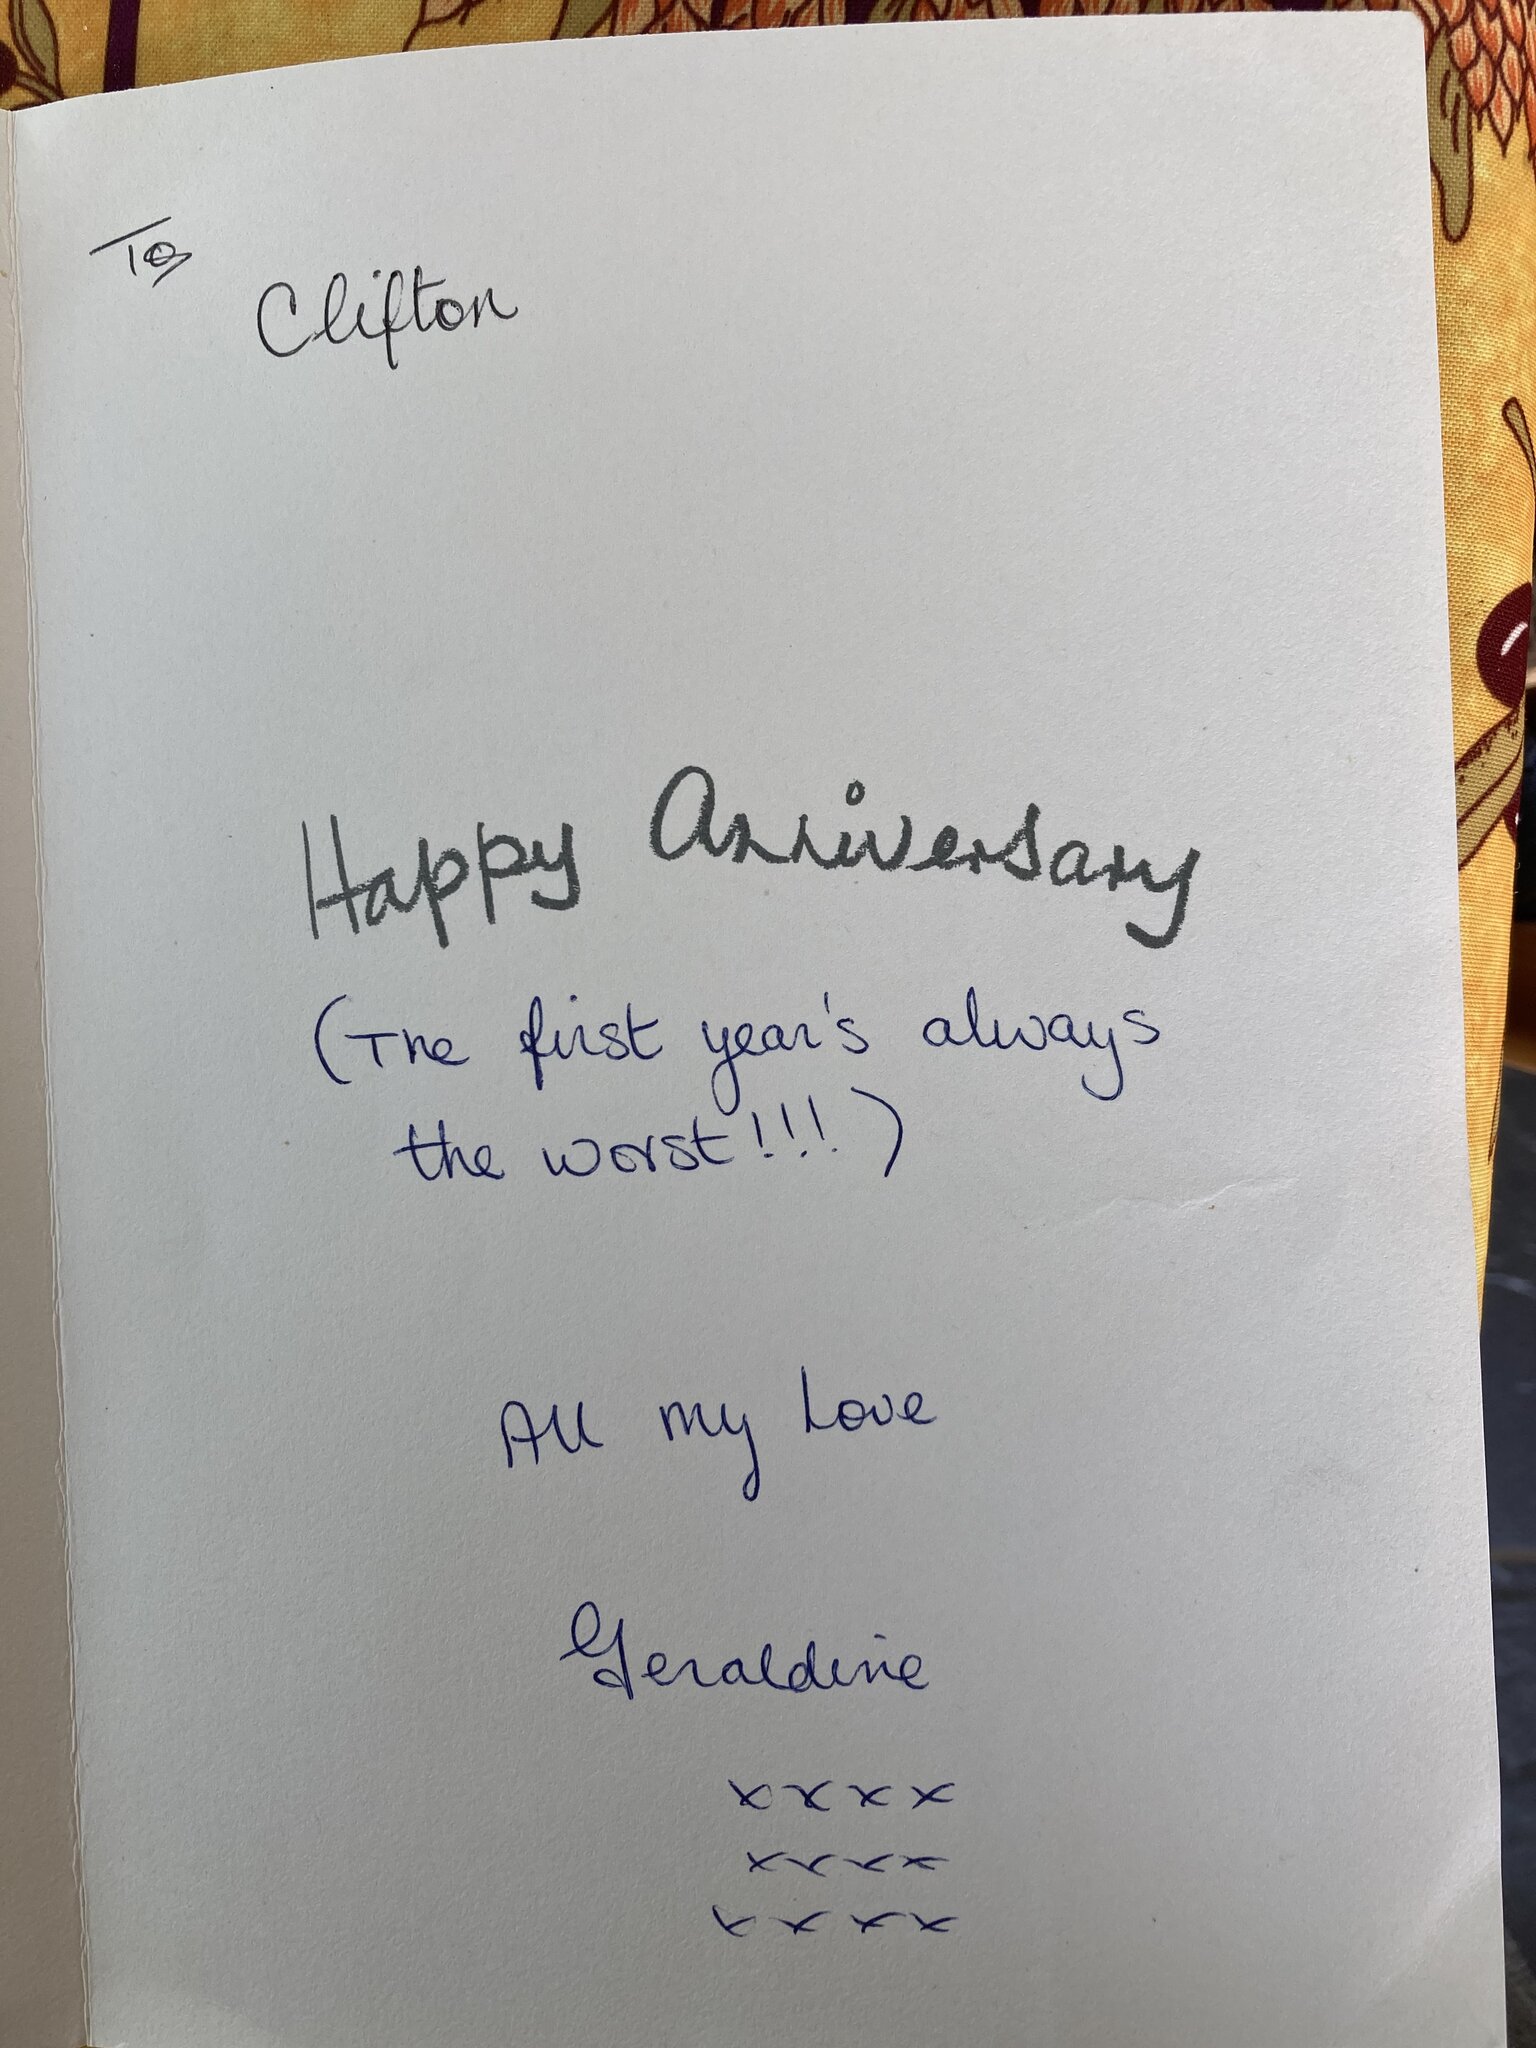 To
Clifton
Happy Anniversary
(The first year's always
the worst!!!)
All my Love
Geraldine
x x x x
x x x x
x x x x